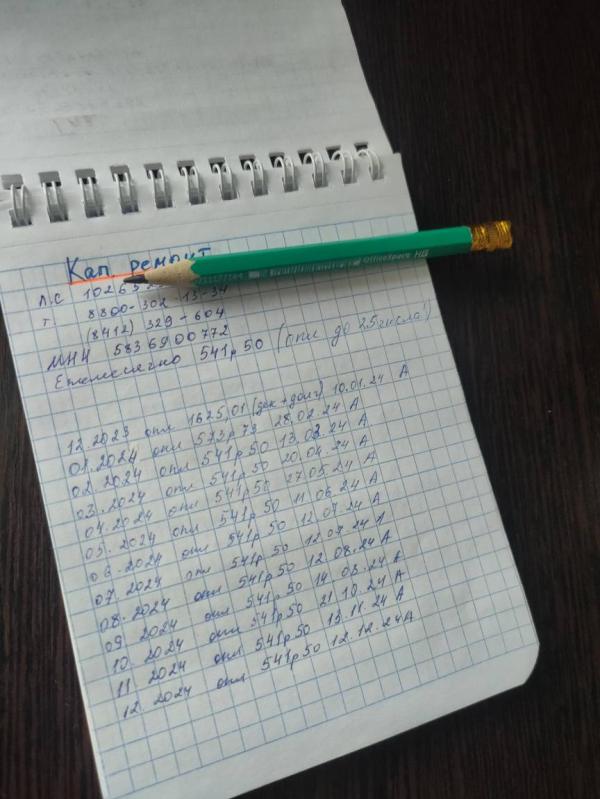 Кап. ремонт
OfficeSpace HB
л.с 10263
т. 8800-302-13-34
(8412) 329-604
ИНН 5836900772
Ежемесячно 541р50 (опл до 25 числа!)
12.2023 опл 1625,01 (дек+долг) 10.01.24 А
01.2024 опл 572р73 28.02.24 А
02.2024 опл 541р50 13.03.24 А
03.2024 опл 541р50 20.04.24 А
04.2024 опл 541р50 27.05.24 А
05.2024 опл 541р50 11.06.24 А
06.2024 опл 541р50 12.07.24 А
07.2024 опл 541р50 12.07.24 А
08.2024 опл 541р50 12.08.24 А
09.2024 опл 541р50 14.08.24 А
10.2024 опл 541р50 21.10.24 А
11.2024 опл 541р50 13.11.24 А
12.2024 опл 541р50 12.12.24 А